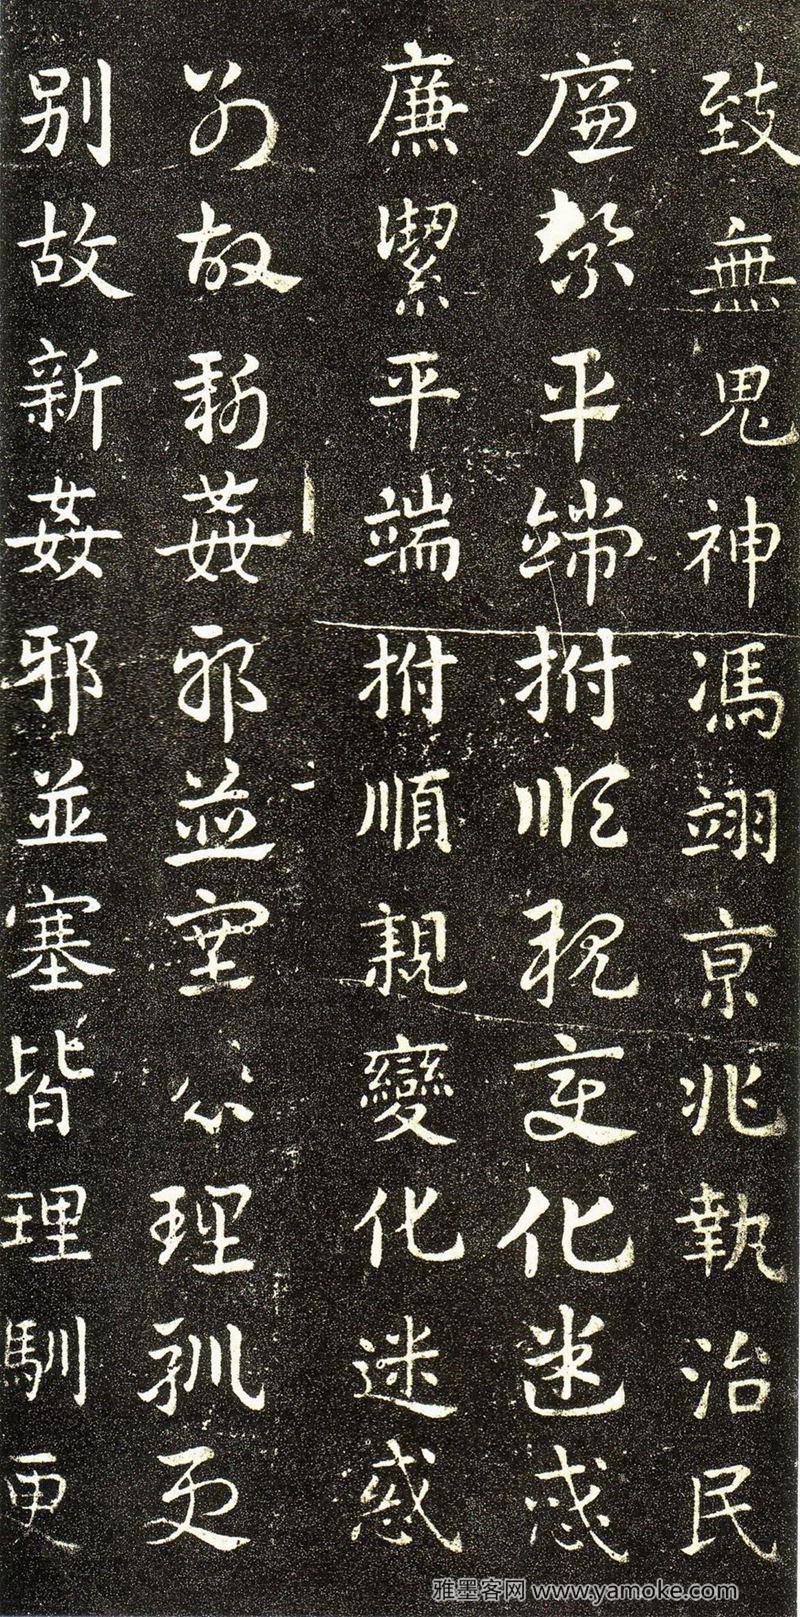 致無鬼神馮翊京兆執治民
廉絜平端拊順親變化迷惑
廉潔平端拊順親變化迷惑
別故新姦邪並塞皆理馴更
別故新姦邪並塞皆理馴更
雅墨客网 www.yamoke.com